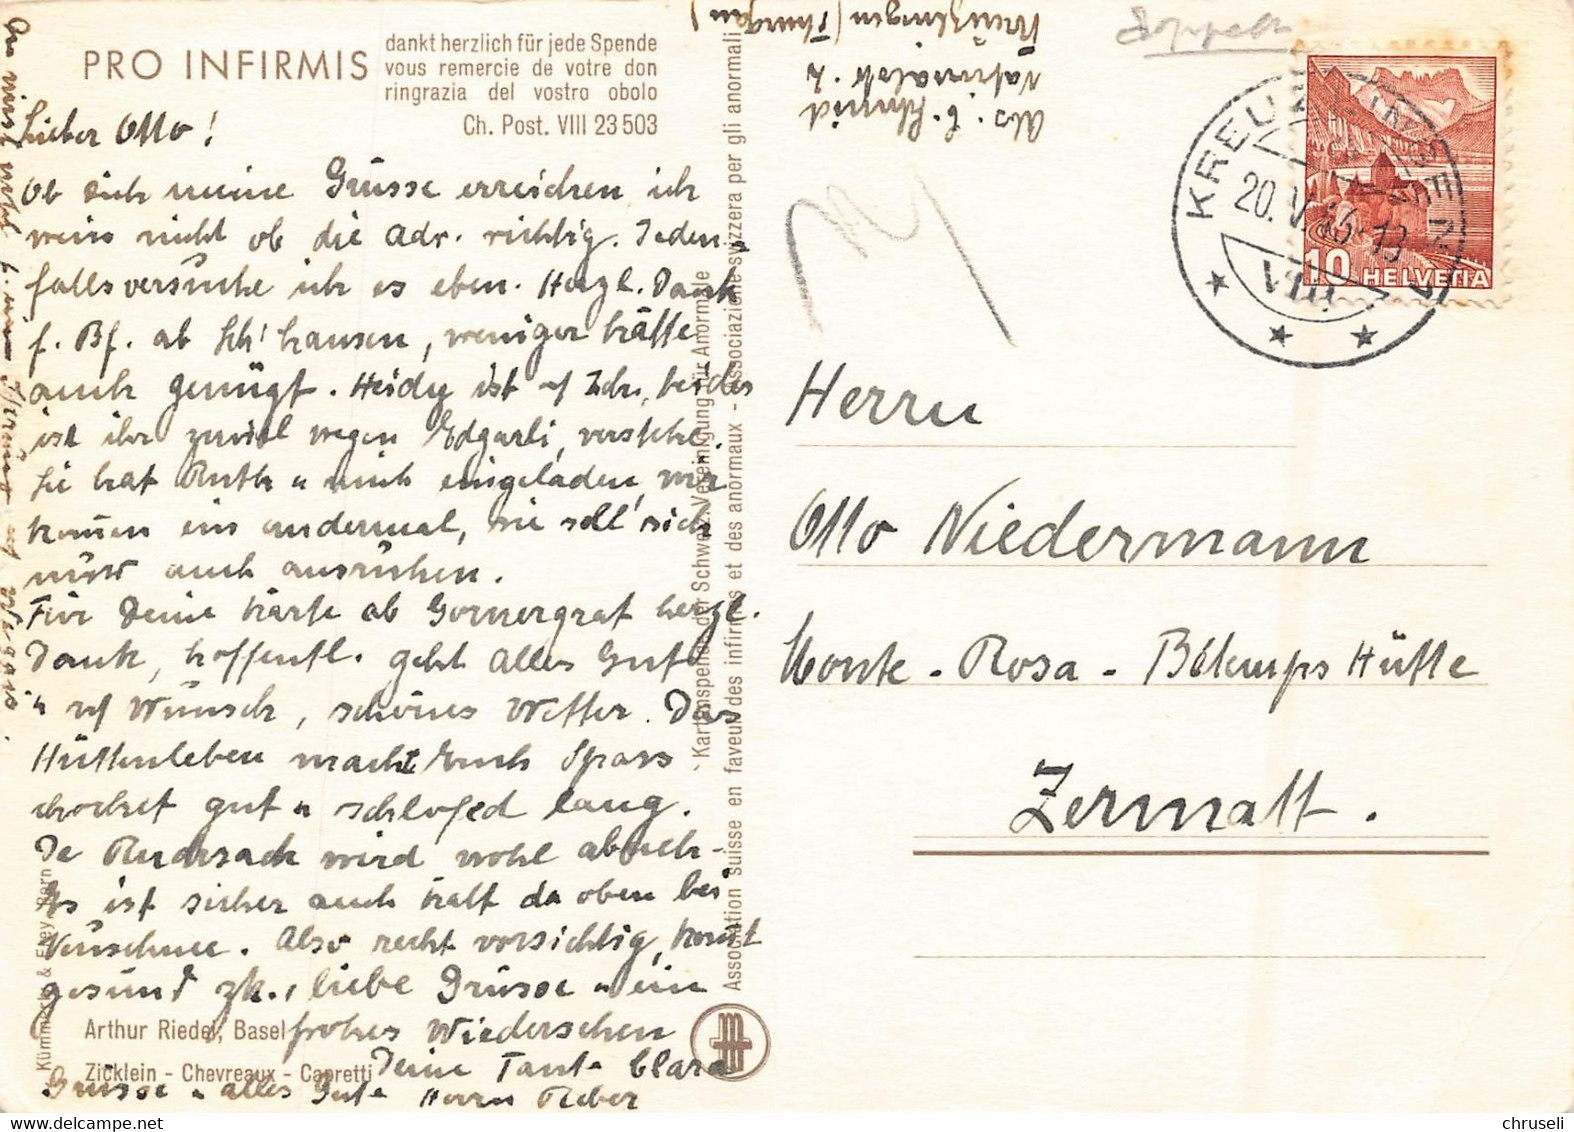 PRO INFIRMIS
dankt herzlich für jede Spende
vous remercie de votre don
ringrazia del vostro obolo
Ch. Post. VIII 23 503
Lieber Otto!
Ob Dich meine Grüsse erreichen ich
weiss nicht ob die Adr. richtig. Jeden-
falls versuche ich es eben. Herzl. Dank
f. Bf. ab hausen, weniger hätte
auch genügt. Heidy ist beides
ist ihr zuviel wegen Edgarli, verstehe.
Sie hat Ruth u mich eingeladen, wir
komen ein andermal, sie soll sich
nur auch ausruhen.
Für Deine Karte ab Gornergrat herzl.
Dank, hoffentl. geht alles Gut
u n/ Wunsch, schönes Wetter. Das
Hüttenleben macht Euch Spass
kochet gut u schlofed lang.
De Rucksack wird wohl abneh-
Es ist sicher auch kalt da oben bei
Neuschnee. Also recht vorsichtig, komt
gesund zk., liebe Grüsse u ein
frohes Wiedersehen
Deine Tante Clara
Grüsse u alles Gute Herrn Reber
Arthur Riedel, Basel
Zicklein - Chevreaux - Capretti
Kümmerly & Frey, Bern
Kartenspende der Schweiz. Vereinigung für Anormale
Association suisse en faveur des infirmes et des anormaux - Associazione svizzera per gli anormali
Abs. C. Schmid
Kreuzlingen (Thurgau)
doppelt
KREUZLINGEN
20.V.46-13
VIII
10 HELVETIA
Herrn
Otto Niedermann
Monte-Rosa-Bétemps Hütte
Zermatt.
chruseli